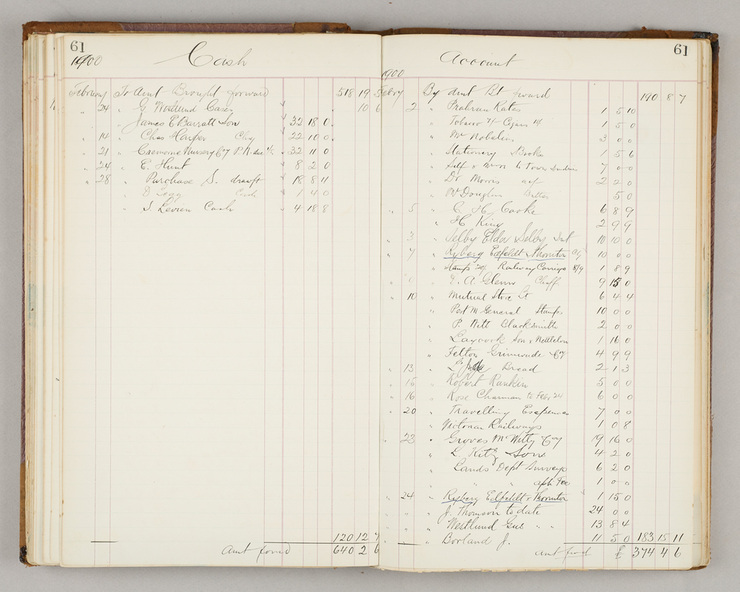 61
1900
Cash
February To Amt Brought forward 518 19
24 " G Wedlund Casey 10 6
James E Barratt Son 32 18 0
14 " Chas Harper Chq 22 10 0
21 " Nursery Co 32 11 0
24 " E. Hunt 8 2 0
28 " Purchase S. draft 18 8 11
" Cash 1 4 0
" S. Levien Cash 4 18 8
120 12
Amt forwd 640 2 6
61
Account
1900
Feby By Amt Bt forward 190 8 7
2 " Prahran Rates 1 5 10
" 1 5 0
" 3 0 0
" Stationary Books 1 5 6
" 7 0 0
" Dr Morris 2 2 0
" Mc Douglas 5 0
5 " C. H. Cooke 6 8 9
" H. King 2 9 9
3 " Selby Elder Selby 10 10 0
7 " Ryberg Edfeldt & Thornton Cq 10 0 0
" Stamps Railway Carriage 8/9 1 8 9
10 " E. A. Glenn Chaff 9 15 0
10 " Mutual Store Lt 6 4 4
" Post M General Stamps 10 0 0
" P. Witt Blacksmith 2 0 0
" Laycock Son & Nettleton 1 16 0
" Felton Grimwade & Co 4 9 9
13 " Bread 2 1 3
15 " Robert Rankin 5 0 0
16 " Rose Charman to Feb 24 6 0 0
20 " Travelling Expenses 7 0 0
" Victorian Railways 1 0 8
23 " Groves Mc Vitty & Coy 19 16 0
" L. Kitz & Sons 4 2 0
" Lands Dept Surveys 6 2 0
" " " 1 0 0
24 " Ryberg Edfeldt & Thornton 1 15 0
" J. Thomson to date 24 0 0
" Wedlund Gus " " 13 8 4
" Borland J. 11 5 0 183 15 11
Amt fwd £ 374 4 6